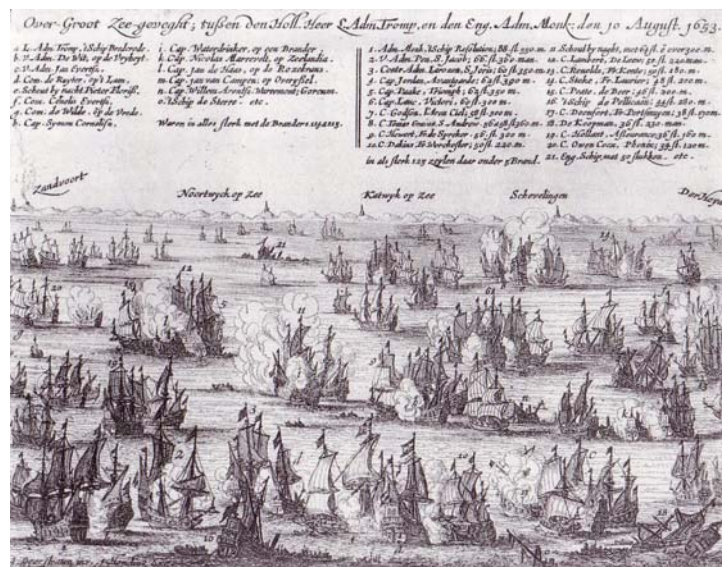 Over-Groot Zee-geveght; tußen den Holl. Heer L. Adm. Tromp, en den Eng. Adm. Monk: den 10 August. 1653.
a. L. Adm. Tromp, 'tSchip Brederode.
b. V. Adm. De Wit, op de Vryheyt.
c. V. Adm. Jan Evertsn.
d. Com. de Ruyter, op't Lam.
e. Schout by nacht Pieter Floriß.
f. Com. Cornelis Evertsn.
g. Com. de Wilde. op de Vrede.
h. Cap. Symon Cornelisn.
i. Cap. Waterdrinker, op een Brander
k. Cap. Nicolas Marrevelt, op Zeelandia.
l. Cap. Jan de Haas, op de Rozekrans.
m. Cap. Jan van Campen, op Overyssel.
n. Cap. Willem Arentß. Warremont; Gorcum.
o. 'tSchip de Sterre. etc.
Waren in alles sterk met de Branders
1. Adm. Monk, 'tSchip Resolution; 88. st. 550. m.
2. V. Adm. Pen, S. Jacob; 66. st. 360. man.
3. Contr. Adm. Lavson, S. Joris; 60. st. 350. m.
4. Cap. Jordan,
5. Cap. Paake, Triomph; 62. st. 350. m.
6. Cap. Lane, Victori. 60. st. 300. m.
7. C. Godson,
8. S. Andreo.
9. C. Houert, Fr. de Spreker. 56. st. 300. m.
10. C. Dakins Fr. Worchester; 50. st. 220. m.
in als sterk 125 zeylen daar onder 5 Brand.
11. Schout by naght, met 62. st. over 300. m.
12. C. Lambert, De Leew; 50. st. 220. man.
13. Fr. Kente; 50. st. 180. m.
14. C. Stoke, Fr. Laurier; 48. st. 200. m.
15. C. de Beer; 46. st. 200. m.
16. 'tSchip de Pellicaan; 44. st. 180. m.
17. C. Fr. Portsmuyen; 38. st. 170. m.
18. De Koopman. 36. st. 230. man.
19. C. Hollart. Assurance; 36. st. 160. m.
20. C. Owen Coex. Phenix; 34. st. 120. m.
21. Eng. Schip, met 50 stukken. etc.
Zandvoort
Noortwyck op Zee
Katwyk op Zee
Schevelingen
Der Heyde